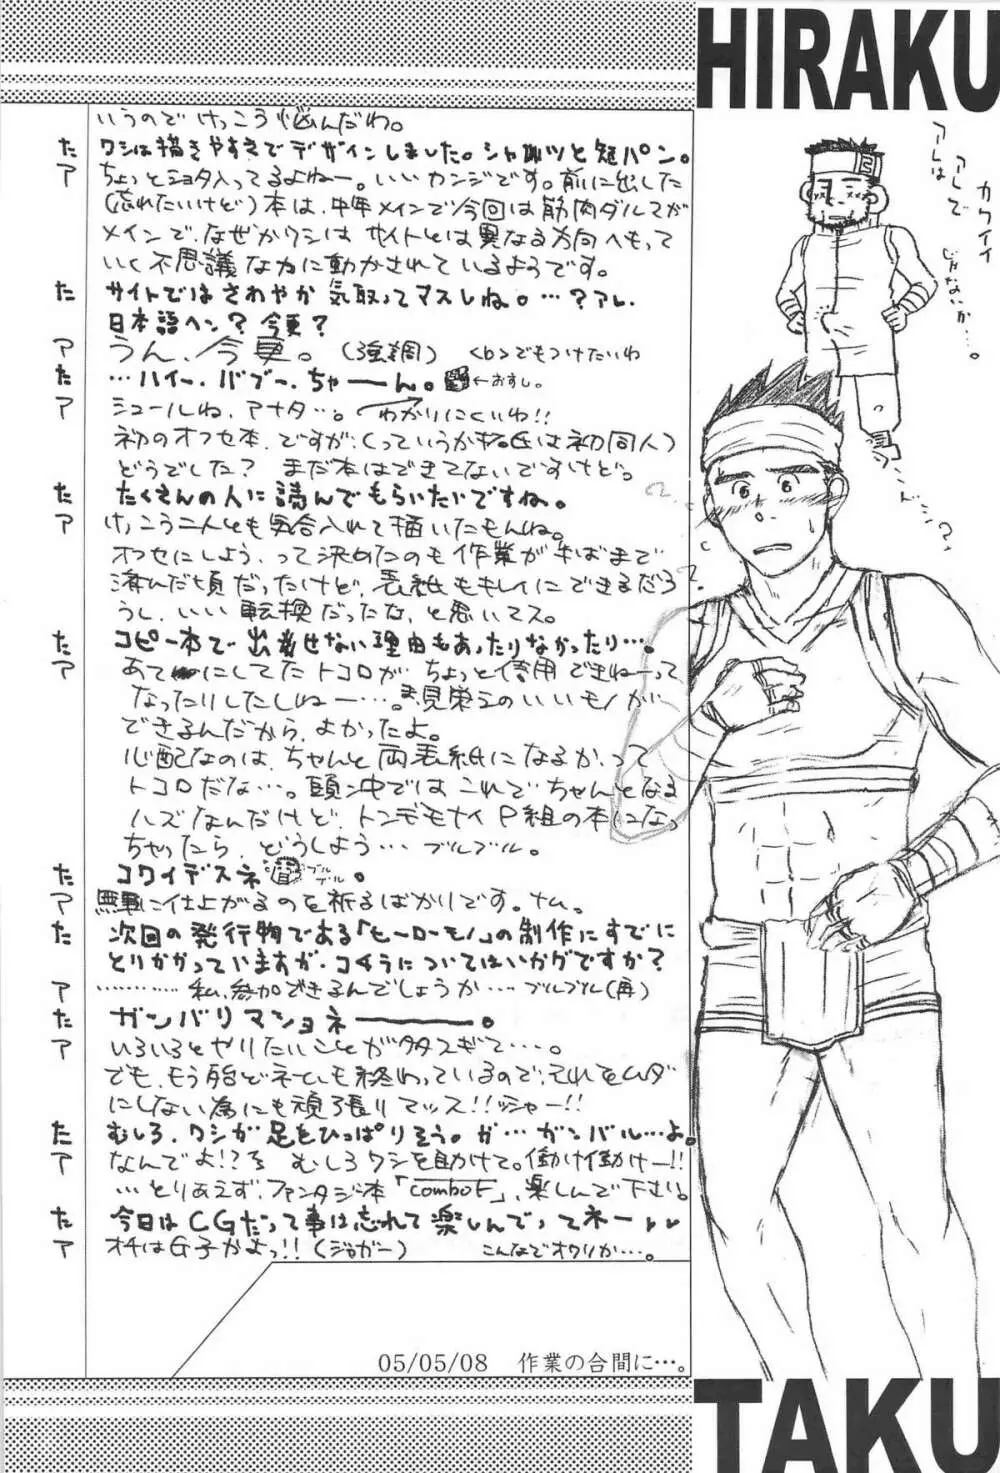 HIRAKU
いうのでけっこう悩んだわ。
た ワシは描きやすさでデザインしました。シャツと短パン。
ア ちょっとショタ入ってるよねー。いいカンジです。前に出した
(忘れたいけど)本は、中年メインで今回は筋肉ダルマが
メインで、なぜかワシはサイトとは異なる方向へもって
いく不思議な力に動かされているようです。
た サイトではさわやか気取ってマスしね。…?アレ、
日本語ヘン?今更?
ア うん、今更。(強調) <b>でもつけたいわ
た …ハイー、バブー、ちゃーん。 ←おすし。
ア シュールね、アナタ…。 わかりにくいわ!!
初のオフセ本、ですが、(っていうか 氏は初同人)
どうでした? まだ本はできてないですけど。
た たくさんの人に読んでもらいたいですね。
ア けっこう二人とも気合入れて描いたもんね。
オフセにしよう、って決めたのも作業が半ばまで
済んだ頃だったけど、表紙もキレイにできるだろ
うし、いい転換だったな、と思いマス。
た コピー本で出せない理由もあったりなかったり…。
ア あてにしてたトコロが、ちょっと信用できねーって
なったりしたしねー…。見栄えのいいモノが
できるんだから、よかったよ。
心配なのは、ちゃんと両表紙になるか、って
トコロだな…。頭ン中ではこれでちゃんとなる
ハズなんだけど、トンデモナイP組の本になっ
ちゃったら、どうしよう… ブルブル。
た コワイデスネ ブルブル。
ア 無事に仕上がるのを祈るばかりです。ナム。
た 次回の発行物である「ヒーローモノ」の制作にすでに
とりかかっていますが、コチラについてはいかがですか?
ア ………… 私、参加できるんでしょうか… ブルブル(再)
た ガンバリマショネーーー。
ア いろいろとやりたいことが多スギて…。
でも、もう殆どネームも終わっているので、それをムダ
にしない為にも頑張りマッス!!ッシャー!!
た むしろ、ワシが足をひっぱりそう。が…ガンバル…よ。
ア なんでよ!?ろ むしろワシを助けて。働け働けー!!
…とりあえず、ファンタジー本「comboF」、楽しんで下さい。
た 今日はCGだって事は忘れて楽しんでってネー
ア オチはG子かよっ!!(ジョガー) こんなでオワリか…。
05/05/08 作業の合間に…。
アレは
アレで
カワイイ
じゃないか…。
TAKU